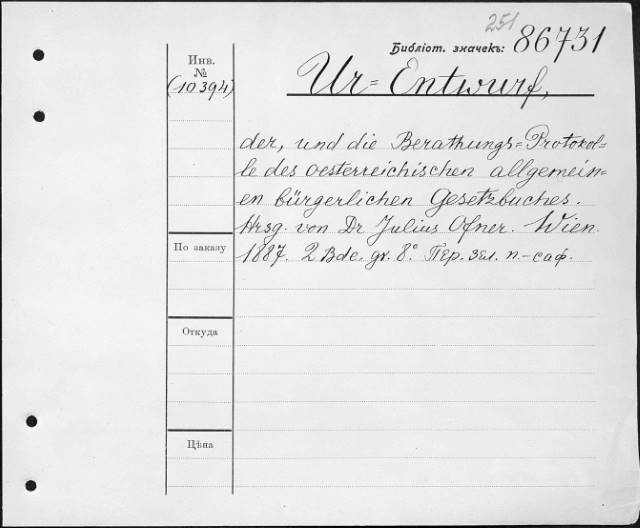 251
Библіот. значекъ: 86731
Инв.
№
(10394)
Ur=Entwurf,
der, und die Berathungs=Protokol=
le des oesterreichischen allgemein=
en bürgerlichen Gesetzbuches.
Hrsg. von Dr Julius Ofner. Wien.
По заказу
1887. 2 Bde. gr. 8° Пер. зел. п.-саф.
Откуда
Цѣна